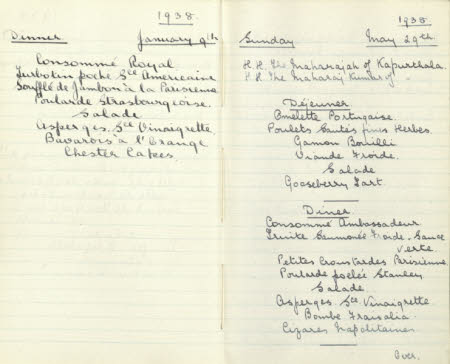 1938.
Dinner January 9th
Consommé Royal
Turbotin poché Sce Americaine
Soufflé de Jambon à la Parisienne
Poularde Strasbourgeoise.
Salade
Asperges. Sce Vinaigrette
Bavarois à l'Orange
Chester Cakes
1938.
Sunday May 29th.
H.H. The Maharajah of Kapurthala.
H.H. The Maharaj
Déjeuner
Omelette Portugaise.
Poulets Sautés fines Herbes.
Gamon Bouilli
Viande Froide.
Salade
Gooseberry Tart.
Diner
Consommé Ambassadeur
Truite Saumonée Froide. Sauce
Verte.
Petites Croustardes Parisienne
Poularde poêlée Stanley
Salade.
Asperges. Sce Vinaigrette
Bombe
Cigares Napolitaines
Over.